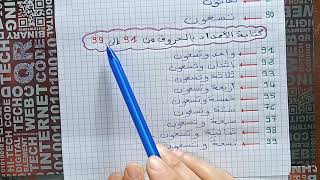 90 ← تسعون
كتابة الأعداد بالحروف من 91 إلى 99
91 ← واحد وتسعون
92 ← اثنان وتسعون
93 ← ثلاثة وتسعون
94 ← أربعة وتسعون
95 ← خمسة وتسعون
96 ← ستة وتسعون
97 ← سبعة وتسعون
98 ← ثمانية وتسعون
99 ← تسعة وتسعون